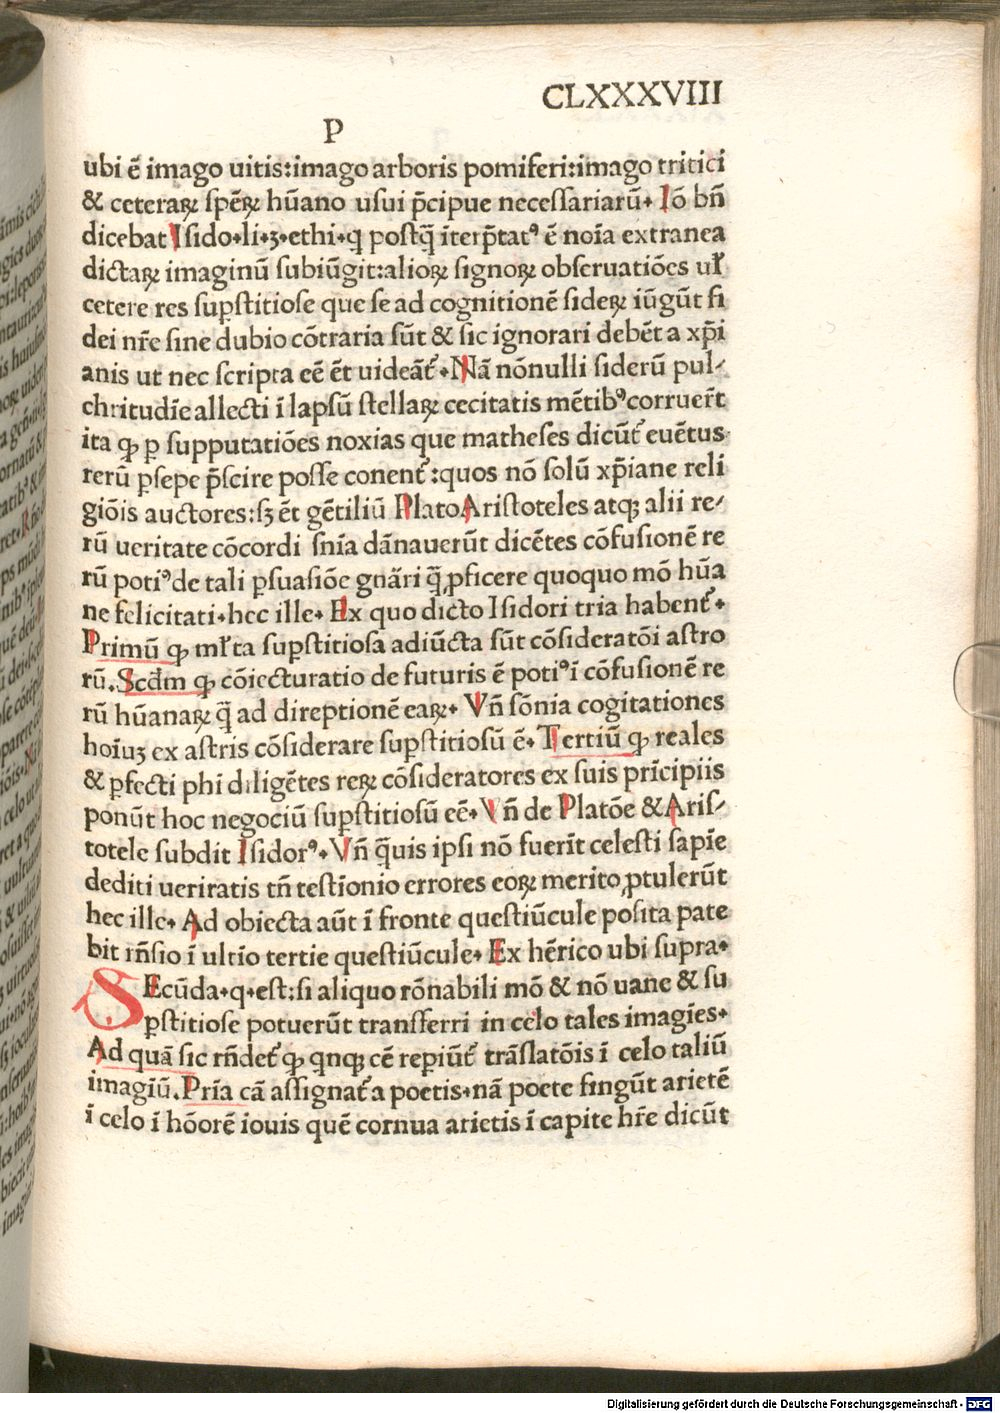 CLXXXVIII
P
ubi ē imago uitis:imago arboris pomiferi:imago tritici
& ceteraꝝ spēꝝ hūano usui p̄cipue necessariarū. Iō bn̄
dicebat Isido.li.3.ethi.ꝙ postq̄ iterp̄tatꝰ ē noīa extranea
dictaꝝ imaginū subiūgit:alioꝝ signoꝝ obseruatiōes uł
cetere res suꝑstitiose que se ad cognitionē sideꝝ iūgūt fi
dei nr̄e sine dubio cōtraria sūt & sic ignorari debēt a xp̄i
anis ut nec scripta eē ēt uideāt᷑.Nā nōnulli siderū pul⸗
chritudīe allecti ī lapsū stellaꝝ cecitatis mētibꝰ corruer̄t
ita ꝙ ꝑ supputatiōes noxias que matheses dicūt᷑ euētus
rerū ꝑsepe p̄scire posse conent᷑:quos nō solū xp̄iane reli
giōis auctores:sꝫ ēt gētiliū Plato Aristoteles atqꝫ alii re⸗
rū ueritate cōcordi snīa dānauerūt dicētes cōfusionē re
rū potiꝰ de tali ꝑsuasiōe gnāri q̄ ꝓficere quoquo mō hūa
ne felicitati.hec ille. Ex quo dicto Isidori tria habent᷑.
Primū ꝙ młta suꝑstitiosa adiūcta sūt cōsideratōi astro
rū.Scd̄m ꝙ cōiecturatio de futuris ē potiꝰ ī cōfusionē re
rū hūanaꝝ q̄ ad direptionē eaꝝ. Vn̄ sōnia cogitationes
hoīuꝫ ex astris cōsiderare suꝑstitiosū ē. Tertiū ꝙ reales
& ꝑfecti phi diligētes reꝝ cōsideratores ex suis prīcipiis
ponūt hoc negociū suꝑstitiosū eē. Vn̄ de Platōe & Aris⸗
totele subdit Isidorꝰ. Vn̄ q̄uis ipsi nō fuerīt celesti sapīe
dediti ueriratis tn̄ testīonio errores eoꝝ merito ꝓtulerūt
hec ille. Ad obiecta aūt ī fronte questiūcule posita pate
bit rn̄sio ī ultīo tertie questiūcule. Ex hērico ubi supra.
SEcūda.q.est:si aliquo rōnabili mō & nō uane & su
ꝑstitiose potuerūt transferri in celo tales imagīes.
Ad quā sic rn̄det᷑ ꝙ qnqꝫ cē reꝑiūt᷑ trāslatōis ī celo taliū
imagiū.Prīa cā assignat᷑ a poetis.nā poete fingūt arietē
ī celo ī hōorē iouis quē cornua arietis ī capite hr̄e dicūt
Digitalisierung gefördert durch die Deutsche Forschungsgemeinschaft - DFG